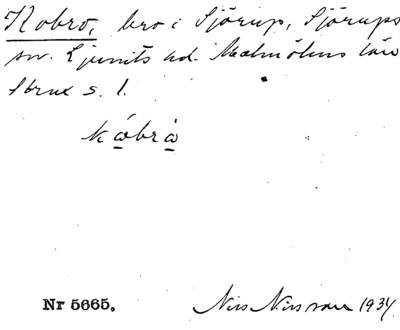 Kobro, bro i Sjörup, Sjörups
sn. Ljunits hd. Malmöhus län
Strux s. 1.
kåbrò
Nr 5665. Nils Nilsson 1934